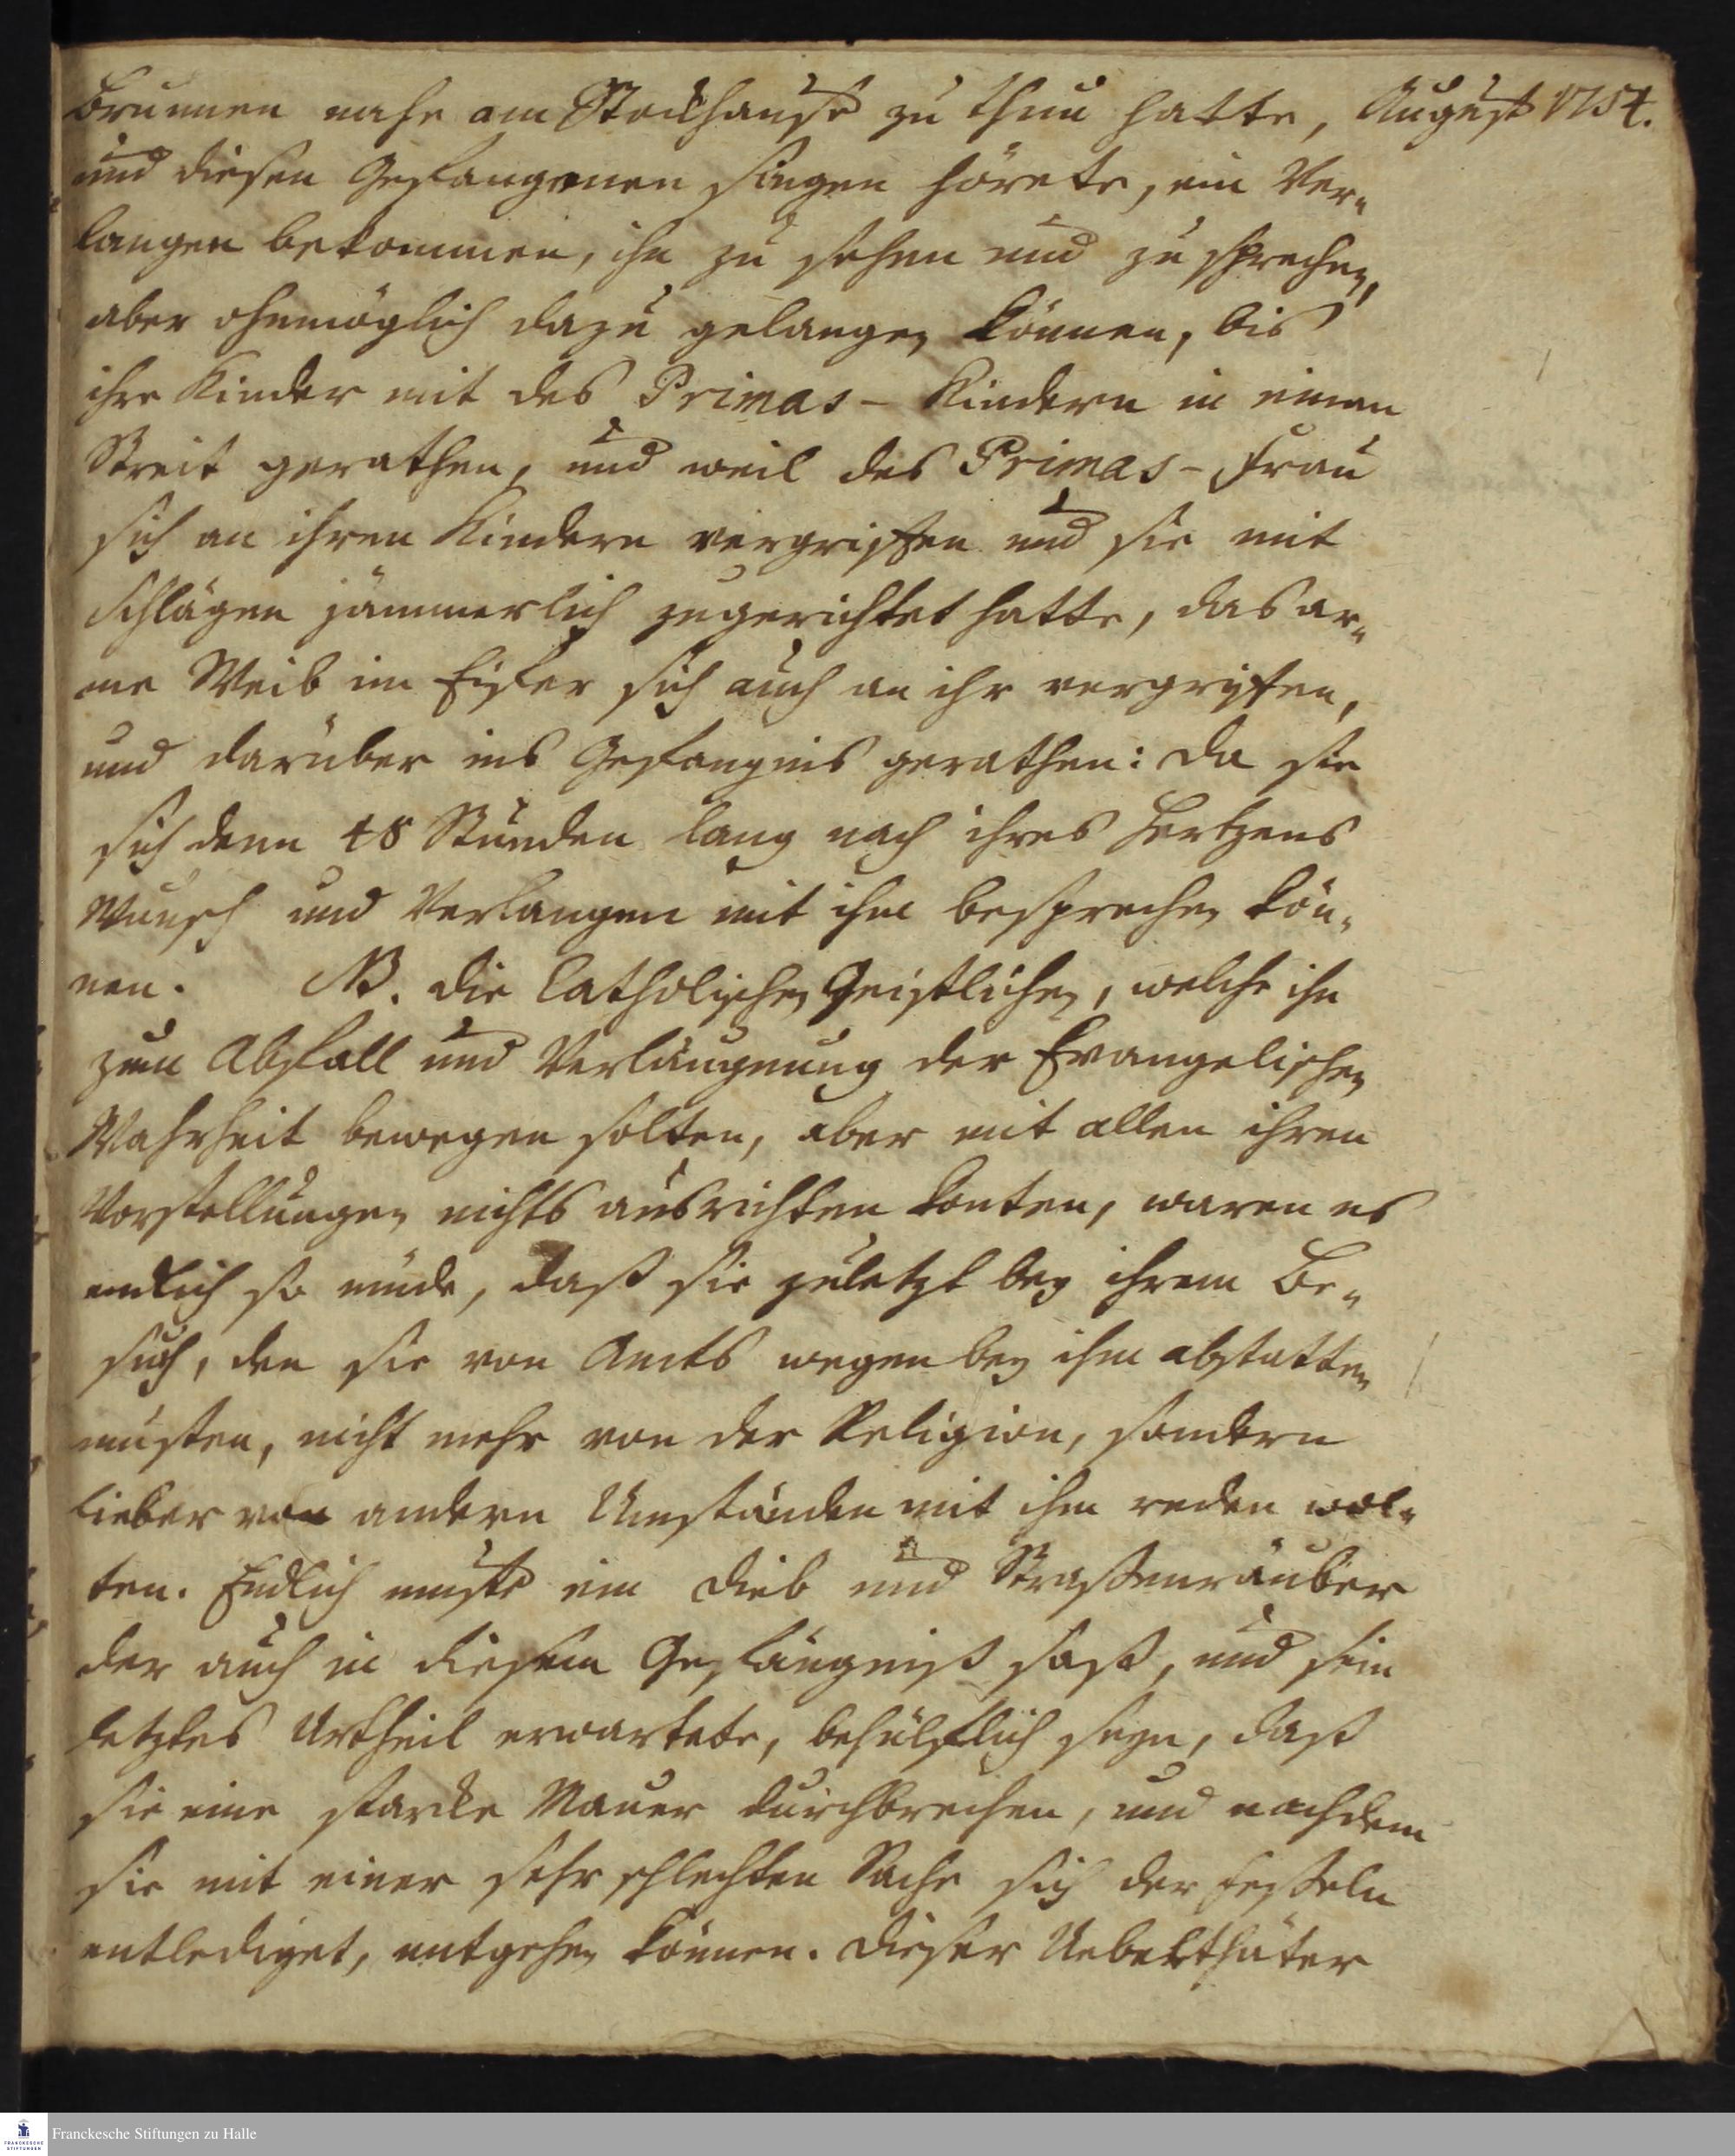 Brunnen nahe am Stockhause zu thun hatte, August 1754.
und diesen Gefangenen singen hörete, ein Ver-
langen bekommen, ihn zu sehen und zu sprechen,
aber ohnmöglich dazu gelangen können, bis
ihre Kinder mit des Primas-Kindern in einen
Streit gerathen, und weil des Primas-Frau
sich an ihren Kindern vergriffen und sie mit
Schlägen jämmerlich zugerichtet hatte, das ar-
me Weib im Eifer sich auch an ihr vergriffen,
und darüber ins Gefängnis gerathen: da sie
sich denn 48 Stunden lang nach ihres Hertzens
Wunsch und Verlangen mit ihm besprechen kön-
nen. NB. die Catholischen Geistlichen, welche ihn
zum Abfall und Verläugnung der Evangelischen
Wahrheit bewegen solten, aber mit allen ihren
Vorstellungen nichts ausrichten konten, waren es
endlich so müde, daß sie zuletzt bey ihrem Be-
such, den sie von Amts wegen bey ihm abstatten
musten, nicht mehr von der Religion, sondern
lieber von andern Umständen mit ihm reden wol-
ten. Endlich muste ein Dieb und Straßenräuber
der auch in diesem Gefängniß saß, und sein
letztes Urtheil erwartete, behülflich seyn, daß
sie eine starcke Mauer durchbrechen, und nachdem
sie mit einer sehr schlechten Sache sich der Feßeln
entlediget, entgehen können. Dieser Uebelthäter
Franckesche Stiftungen zu Halle
FRANCKESCHE
STIFTUNGEN